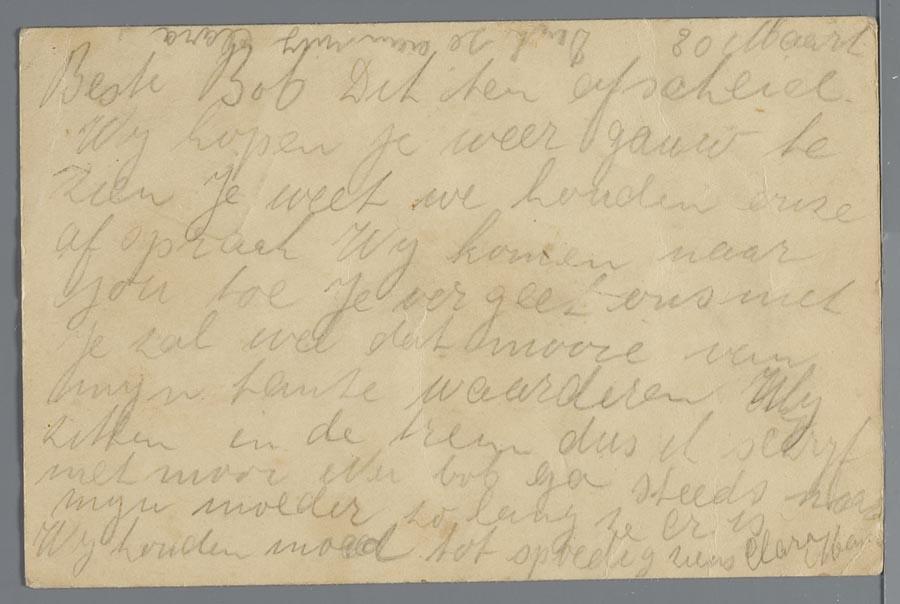 30 Maart
Beste Bob Dit ten afscheid.
Wy hopen je weer gauw te
zien Je weet we houden onze
af spraak Wy komen naar
jou toe Je vergeet ons niet
Je zal wel dat mooie van
myn tante waarderen Wy
zitten in de trein dus ik scryf
niet mooi Nu bob ga steeds naar
myn moeder zo lang ze er is
Wy houden moed tot spoedig ziens Clara
Denk je aan Clara